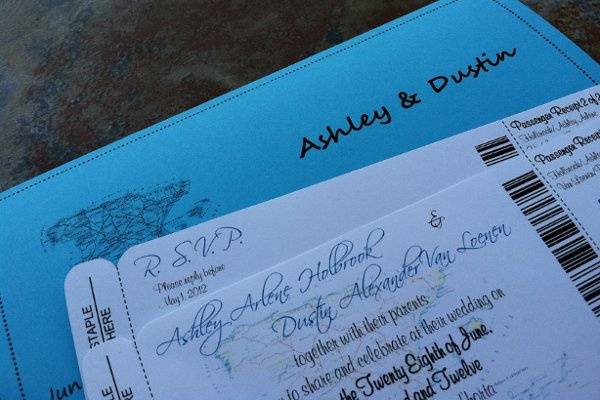 Ashley & Dustin
Passenger Receipt 2 of
Holbrook/Ashley Arlene
Passenger Receipt
R. S.V.P.
Please reply before
May 1, 2012
STAPLE
HERE
&
Ashley Arlene Holbrook
Dustin Alexander Van Loenen
together with their parents
to share and celebrate at their wedding on
the Twenty Eighth of June,
and Twelve
HERE
Jun